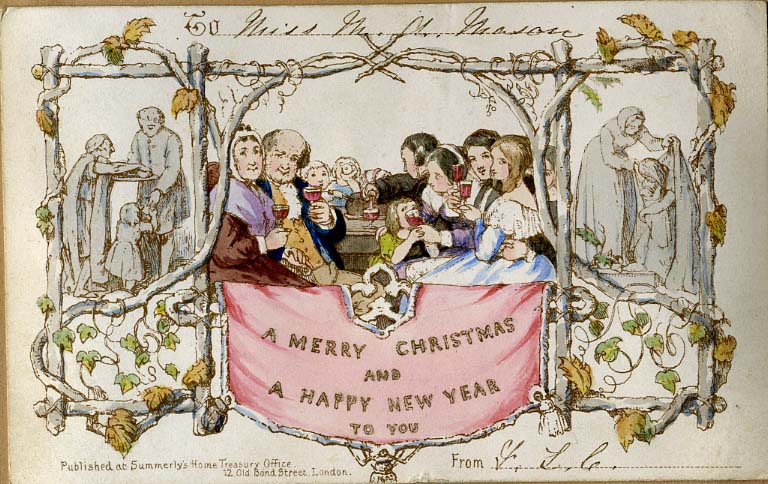 To Miss M. A. Mason
A MERRY CHRISTMAS
AND
A HAPPY NEW YEAR
TO YOU
Published at Summerly's Home Treasury Office
12, Old Bond Street, London.
From